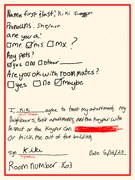 Name first & last: Kiki Swagger
Pronouns: She/her
are you a:
□mr ☑ms □mx?
Any pets?
☑yes □no Other
Are you ok with room mates?
□yes □no ☑maybe
I, Kiki agree to treat my apartment, my
neighbours, their apartments, and the Keycar with
respect or the Keycar can
or kick me out of the building.
Sign: Kiki Date: 6/20/23
Room number: 103